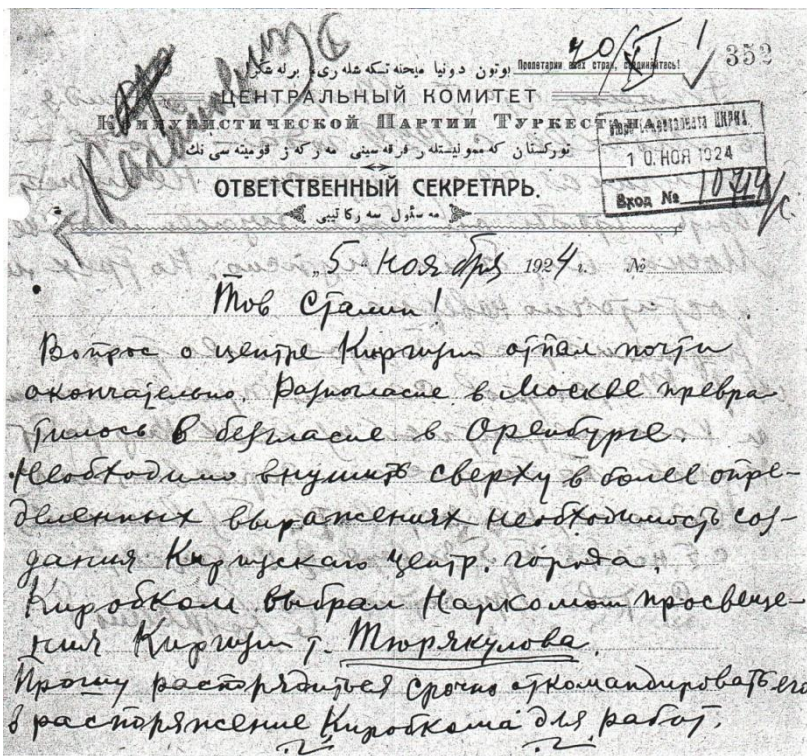 40/XI
! 352
بوتون دونيا ميحنه تكه شله رى، برله شكز! Пролетарии всех стран, соединяйтесь!
ЦЕНТРАЛЬНЫЙ КОМИТЕТ
Коммунистической Партии Туркестана
توركستان كوممونيستلر فرقه سينى مه ركه ز قوميته سى نك
10. НОЯ 1924
Вход № 10714/с
ОТВЕТСТВЕННЫЙ СЕКРЕТАРЬ.
مه سئول سه ركاتيبى
„5" Ноября 1924 г. №
Тов Сталин!
Вопрос о центре Киргизии отпал почти
окончательно. Разногласие в Москве превра
тилось в безгласие в Оренбурге.
Необходимо внушить сверху в более опре-
деленных выражениях необходимость соз-
дания Киргизскаго центр. города.
Киробком выбрал Наркомом просвеще-
ния Киргизии т. Тюрякулова.
Прошу распорядиться срочно откомандировать его
в распоряжение Киробкома для работ.